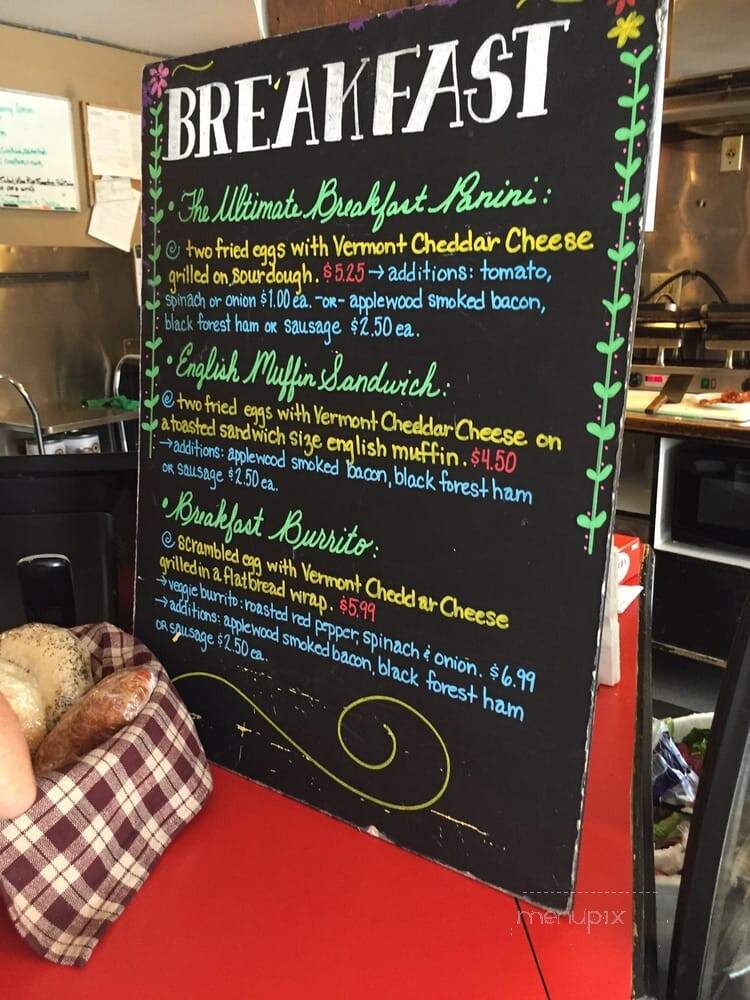 BREAKFAST
• The Ultimate Breakfast Panini:
two fried eggs with Vermont Cheddar Cheese
grilled on sourdough. $5.25 → additions: tomato,
spinach or onion $1.00 ea. -or- applewood smoked bacon,
black forest ham or sausage $2.50 ea.
• English Muffin Sandwich:
two fried eggs with Vermont Cheddar Cheese on
a toasted sandwich size english muffin. $4.50
→ additions: applewood smoked bacon, black forest ham
or sausage $2.50 ea.
• Breakfast Burrito:
scrambled egg with Vermont Cheddar Cheese
grilled in a flatbread wrap. $5.99
→ veggie burrito: roasted red pepper, spinach & onion. $6.99
→ additions: applewood smoked bacon, black forest ham
or sausage $2.50 ea.
menupix